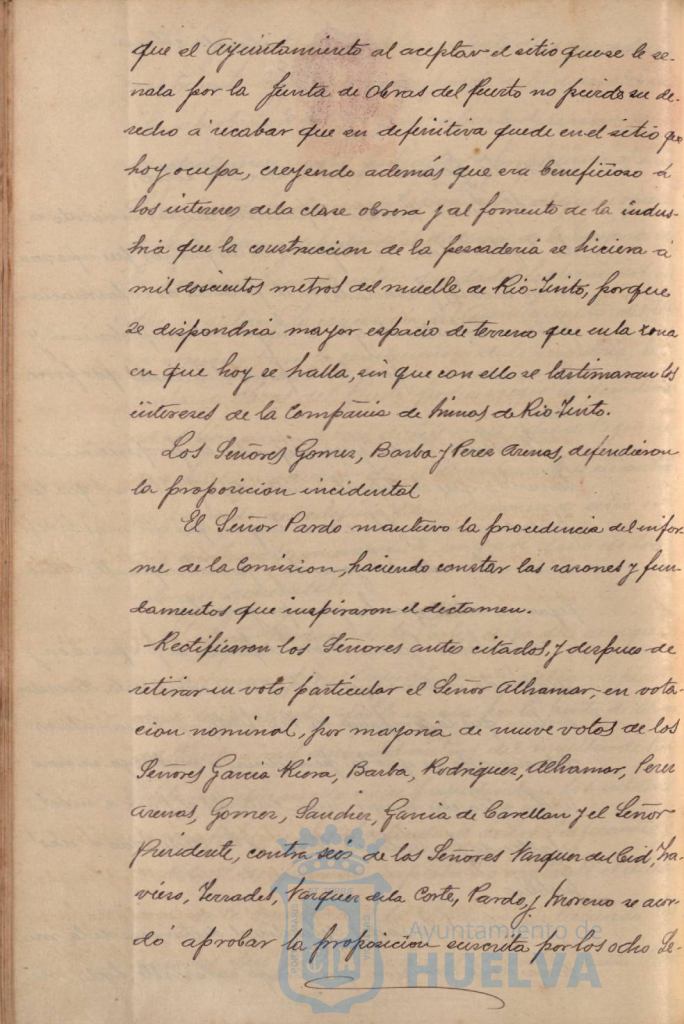 que el Ayuntamiento al aceptar el sitio que se le se-
ñala por la Junta de Obras del Puerto no pierde su de-
recho á recabar que en definitiva quede en el sitio que
hoy ocupa, creyendo además que era beneficioso á
los intereses de la clase obrera y al fomento de la indus-
tria que la construccion de la pescaderia se hiciera á
mil doscientos metros del muelle de Rio-Tinto, porque
se dispondria mayor espacio de terreno que en la zona
en que hoy se halla, sin que con ello se lastimaran los
intereses de la Compañia de Minas de Rio Tinto.
Los Señores Gomez, Barba y Perez Arenas, defendieron
la proposicion incidental
El Señor Pardo mantuvo la procedencia del infor-
me de la Comision, haciendo constar las razones y fun-
damentos que inspiraron el dictamen.
Rectificaron los Señores antes citados, y despues de
retirar su voto particular el Señor Alhamar, en vota-
cion nominal, por mayoria de nueve votos de los
Señores Garcia Riera, Barba, Rodriguez, Alhamar, Perez
Arenas, Gomez, Sanchez, Garcia de Casellan y el Señor
Presidente, contra seis de los Señores Vazquez del Cid, Tra-
vieso, Terrades, Vazquez de la Corte, Pardo, y Moreno se acor-
dó aprobar la proposicion suscrita por los ocho Se-
Ayuntamiento de
HUELVA